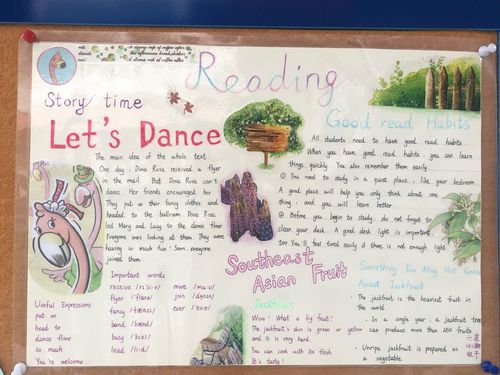 A strong cup of coffee after
the afternoon bread,thicker
A strong cup of coffee after
Reading
Story time
Let's Dance
The main idea of the whole text:
One day, Dina Rosa received a flyer
in the mail. But Dina Rosa can't
dance. Her friends encouraged her.
They put on their fancy clothes and
headed to the ballroom. Dina Rosa
led Mary and Lucy to the dance floor.
Everyone was looking at them. They were
having so much fun! Soon, everyone
joined them.
Important words
receive /rɪ'si:v/
flyer /'flaɪə/
fancy /'fænsi/
band /bænd/
busy /'bɪzi/
lead /li:d/
move /mu:v/
join /dʒɔɪn/
ever /'evə/
Useful Expressions
put on
head to
dance floor
so much
You're welcome.
Good read Habits
All students need to have good read habits.
When you have good read habits, you can learn
things quickly. You also remember them easily.
① You need to study in a quiet place, like your bedroom.
A good place will help you only think about one
thing, and you will learn better.
② Before you begin to study, do not forget to
clean your desk. A good desk light is important
too. You'll feel tired easily if there is not enough light.
Southeast
Asian Fruit
Jackfruit
Wow! What a big fruit!
The jackfruit's skin is green or yellow
and it is very hard.
You can cook with its flesh.
It's tasty!
Something You May Not Know
About Jackfruit
· The jackfruit is the heaviest fruit in
the world.
· In a single year, a jackfruit tree
can produce more than 250 fruits.
· Unripe jackfruit is prepared as
a vegetable.